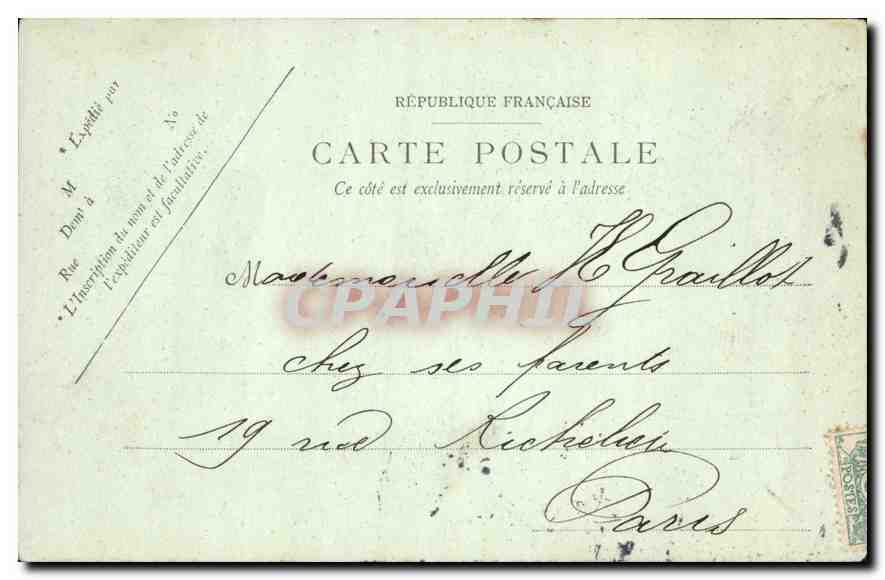 RÉPUBLIQUE FRANÇAISE
CARTE POSTALE
Ce côté est exclusivement réservé à l'adresse
* Expédié par
M
Demt à
Rue No
* L'Inscription du nom et de l'adresse de
l'expéditeur est facultative.
Mademoiselle H Graillot
chez ses parents
19 rue Richelieu
Paris
CPAPHIL
POSTES